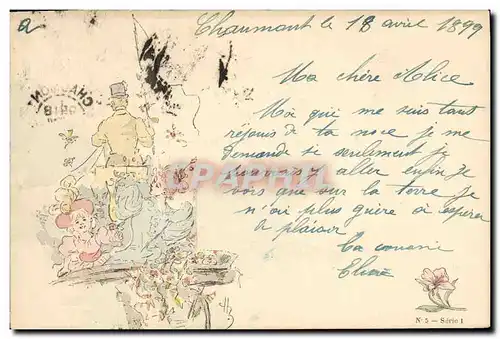 a
Chaumont le 18 avril 1899
Ma chère Alice
Moi qui me suis tant
réjouis d ta noce je me
demande si seulement je
pourrais y aller enfin je
vois que sur la terre je
n'ai plus guère a espérer
a plaisir
Ta cousine
N° 5 — Série I